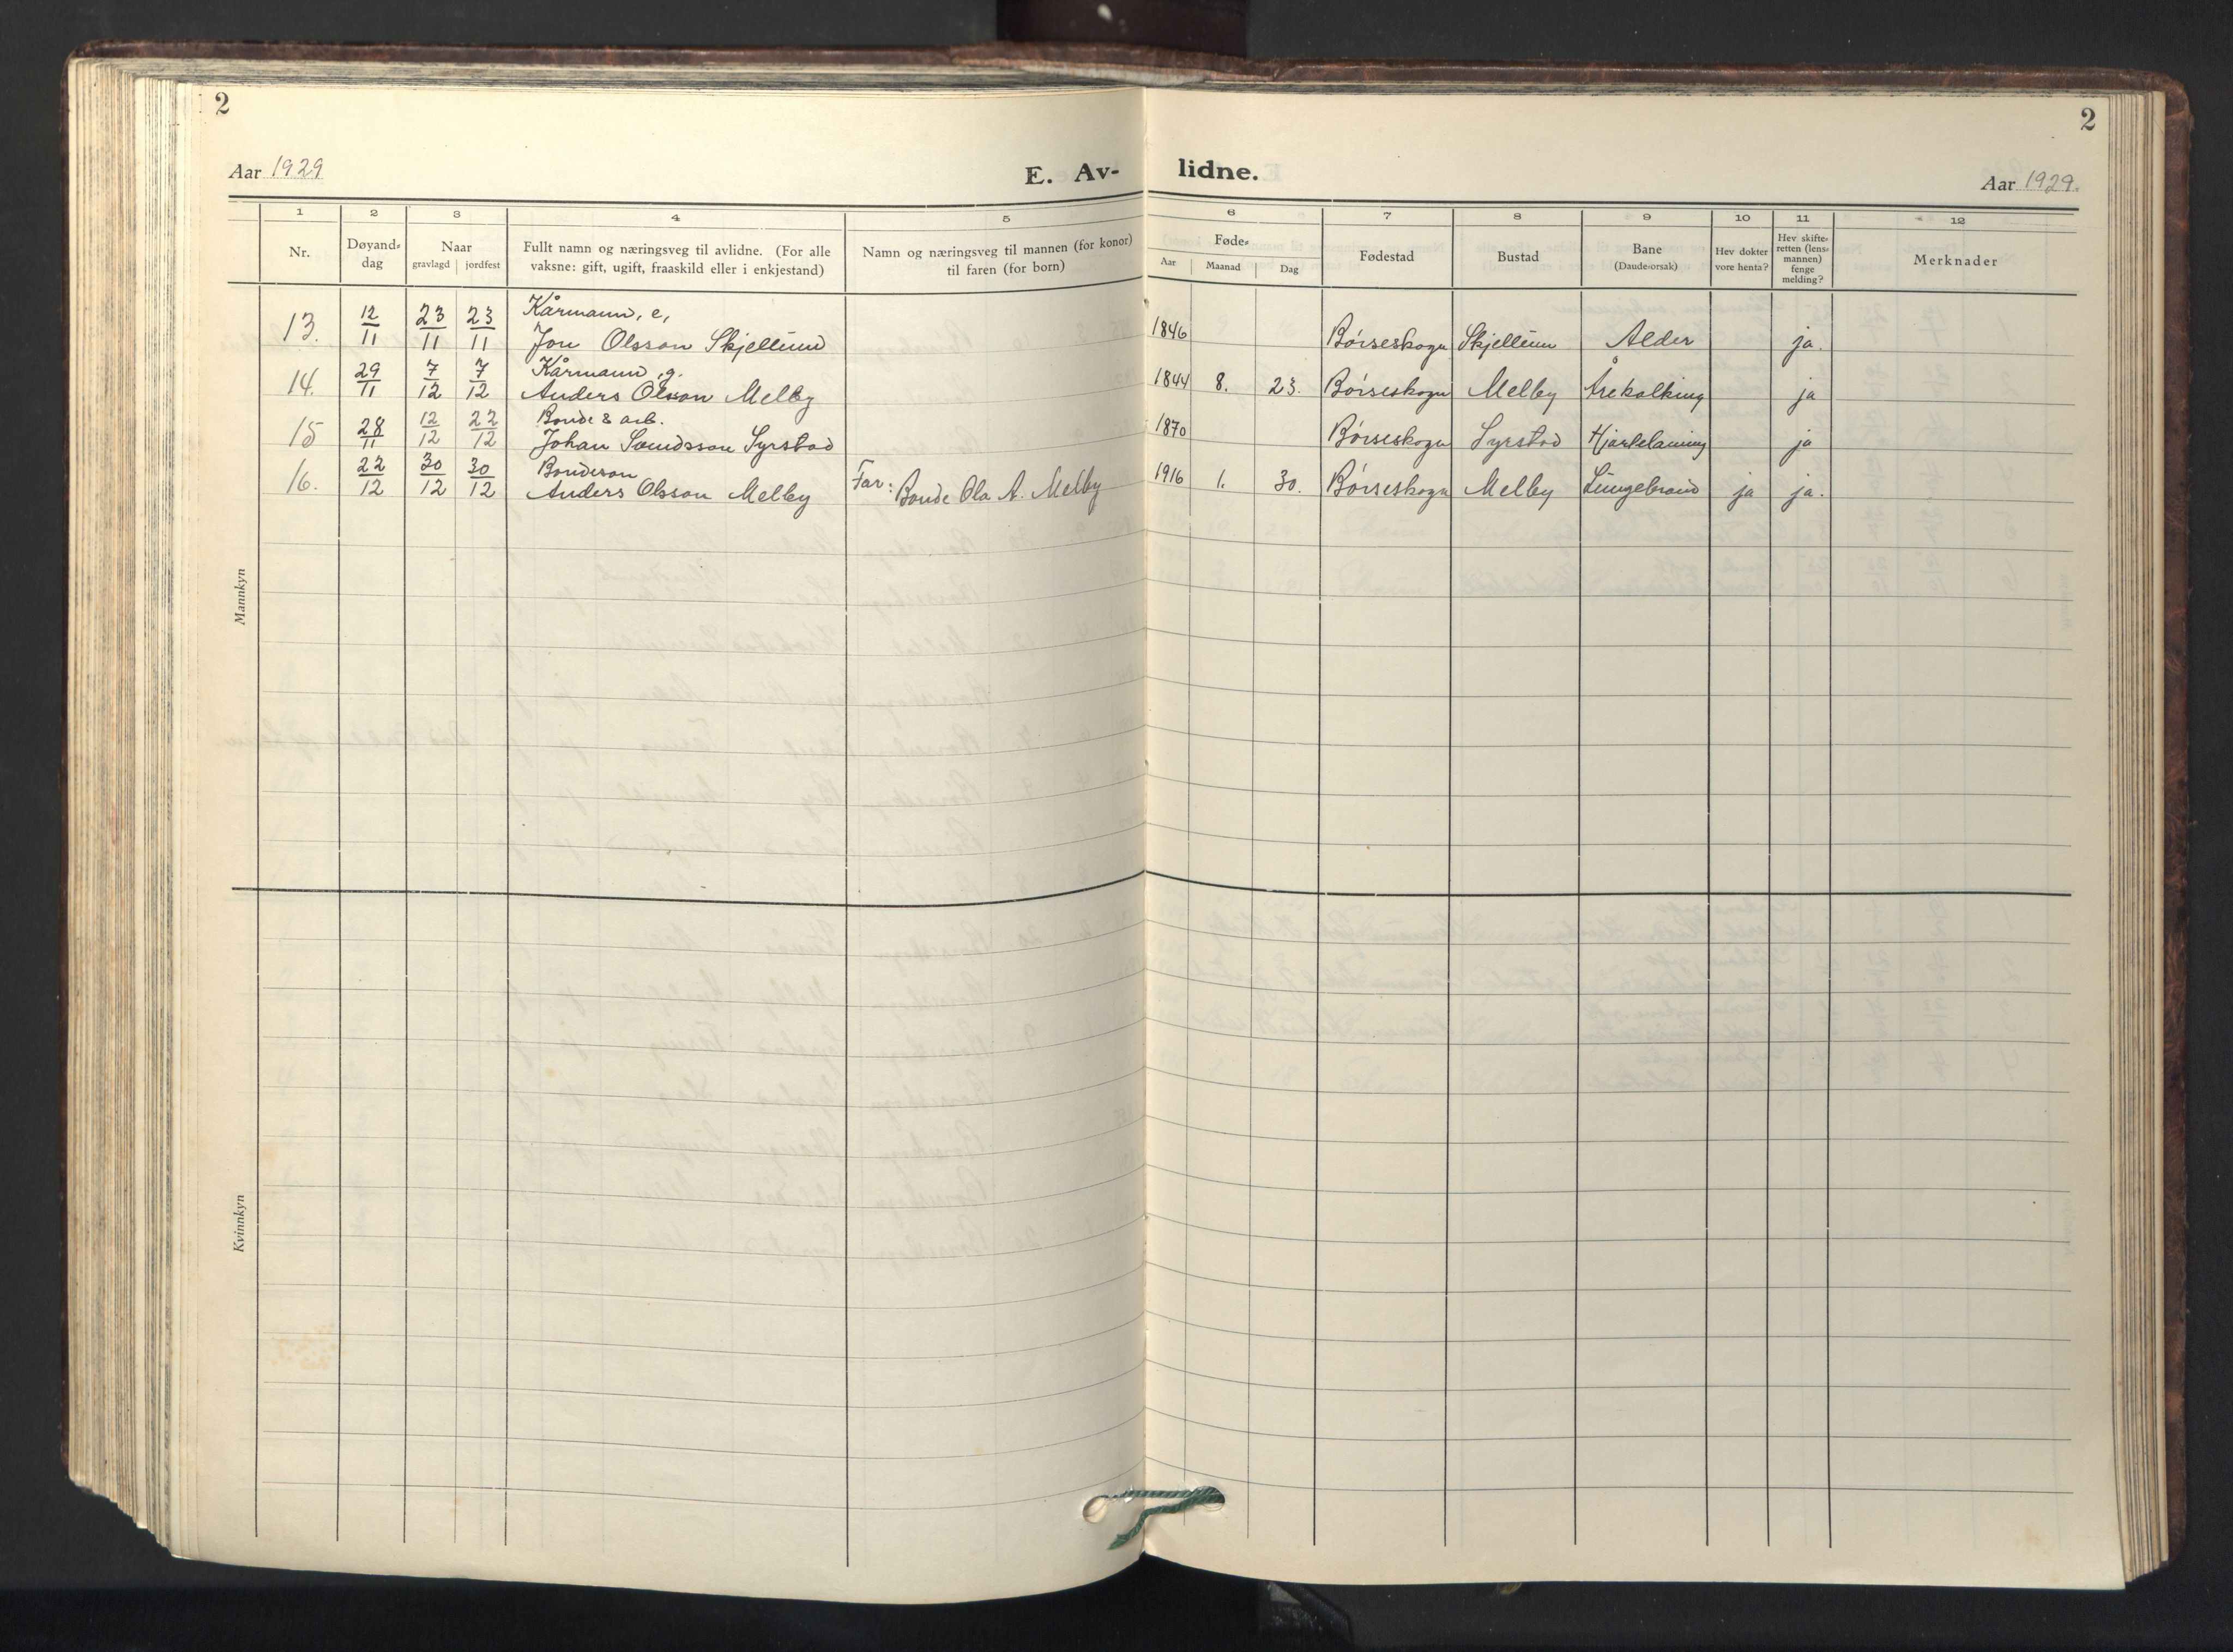 2
2
Aar 1929
E. Av-
lidne.
Aar 1929.
1 2 3 4 5 6 7 8 9 10 11 12
Nr.
Døyand-
dag
Naar
gravlagd jordfest
Fullt namn og næringsveg til avlidne. (For alle
vaksne: gift, ugift, fraaskild eller i enkjestand)
Namn og næringsveg til mannen (for konor)
til faren (for born)
Føde-
Aar Maanad Dag
Fødestad
Bustad
Bane
(Daude-orsak)
Hev dokter
vore henta?
Hev skifte-
retten (lens-
mannen)
fenge
melding?
Merknader
Mannkyn
13. 12/11 23/11 23/11 Kårmann, e,
Jon Olsson Skjellum 1846 Børseskogn Skjellum Alder ja.
14. 29/11 7/12 7/12 Kårmann, g.
Anders Olsson Melby 1844 8. 23. Børseskogn Melby Årekalking ja
15 28/11 12/12 22/12 Bonde & arb.
Johan Syrstad 1870 Børseskogn Syrstad Hjartelaming ja
16. 22/12 30/12 30/12 Bondeson
Anders Olsson Melby Far: Bonde Ola A. Melby 1916 1. 30. Børseskogn Melby Lungebrand ja ja.
Kvinnkyn